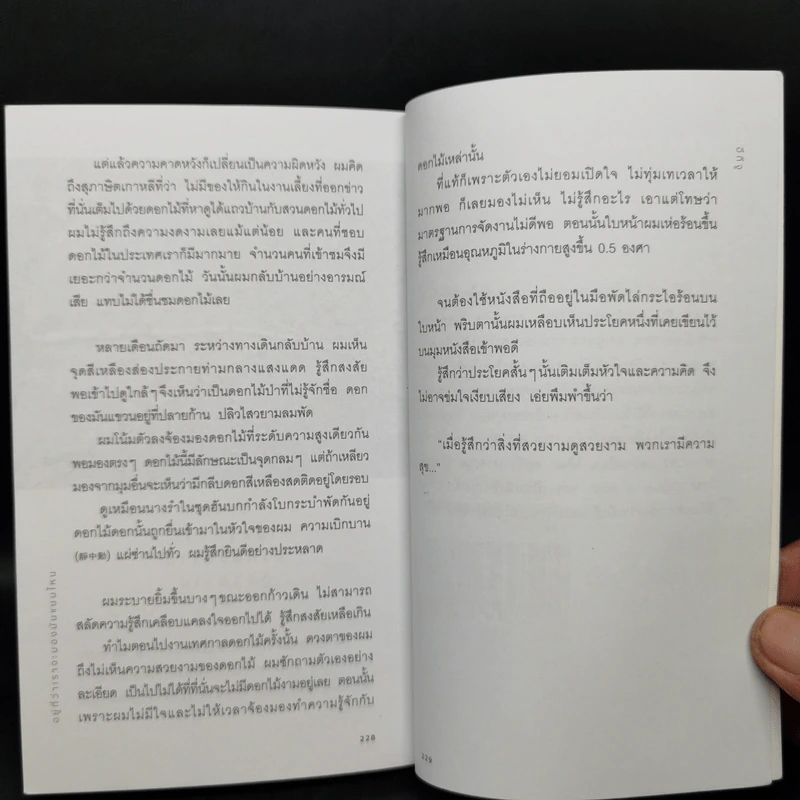 แต่แล้วความคาดหวังก็เปลี่ยนเป็นความผิดหวัง ผมคิด
ถึงสุภาษิตเกาหลีที่ว่า ไม่มีของให้กินในงานเลี้ยงที่ออกข่าว
ที่นั่นเต็มไปด้วยดอกไม้ที่หาดูได้แถวบ้านกับสวนดอกไม้ทั่วไป
ผมไม่รู้สึกถึงความงดงามเลยแม้แต่น้อย และคนที่ชอบ
ดอกไม้ในประเทศเราก็มีมากมาย จำนวนคนที่เข้าชมจึงมี
เยอะกว่าจำนวนดอกไม้ วันนั้นผมกลับบ้านอย่างอารมณ์
เสีย แทบไม่ได้ชื่นชมดอกไม้เลย
หลายเดือนถัดมา ระหว่างทางเดินกลับบ้าน ผมเห็น
จุดสีเหลืองส่องประกายท่ามกลางแสงแดด รู้สึกสงสัย
พอเข้าไปดูใกล้ๆจึงเห็นว่าเป็นดอกไม้ป่าที่ไม่รู้จักชื่อ ดอก
ของมันแขวนอยู่ที่ปลายก้าน ปลิวไสวยามลมพัด
ผมโน้มตัวลงจ้องมองดอกไม้ที่ระดับความสูงเดียวกัน
พอมองตรงๆ ดอกไม้นี้มีลักษณะเป็นจุดกลมๆ แต่ถ้าเหลียว
มองจากมุมอื่นจะเห็นว่ามีกลีบดอกสีเหลืองสดติดอยู่โดยรอบ
ดูเหมือนนางรำในชุดฮันบกกำลังโบกระบำพัดกันอยู่
ดอกไม้ดอกนั้นถูกยื่นเข้ามาในหัวใจของผม ความเบิกบาน
(靜中動) แผ่ซ่านไปทั่ว ผมรู้สึกยินดีอย่างประหลาด
ผมระบายยิ้มขึ้นบางๆขณะออกก้าวเดิน ไม่สามารถ
สลัดความรู้สึกเคลือบแคลงใจออกไปได้ รู้สึกสงสัยเหลือเกิน
ทำไมตอนไปงานเทศกาลดอกไม้ครั้งนั้น ดวงตาของผม
ถึงไม่เห็นความสวยงามของดอกไม้ ผมซักถามตัวเองอย่าง
ละเอียด เป็นไปไม่ได้ที่ที่นั่นจะไม่มีดอกไม้งามอยู่เลย ตอนนั้น
เพราะผมไม่มีใจและไม่ให้เวลาจ้องมองทำความรู้จักกับ
อยู่ที่ว่าเราจะมองมันแบบไหน
228
ดอกไม้เหล่านั้น
ที่แท้ก็เพราะตัวเองไม่ยอมเปิดใจ ไม่ทุ่มเทเวลาให้
มากพอ ก็เลยมองไม่เห็น ไม่รู้สึกอะไร เอาแต่โทษว่า
มาตรฐานการจัดงานไม่ดีพอ ตอนนั้นใบหน้าผมเห่อร้อนขึ้น
รู้สึกเหมือนอุณหภูมิในร่างกายสูงขึ้น 0.5 องศา
จนต้องใช้หนังสือที่ถืออยู่ในมือพัดไล่กระไอร้อนบน
ใบหน้า พริบตานั้นผมเหลือบเห็นประโยคหนึ่งที่เคยเขียนไว้
บนมุมหนังสือเข้าพอดี
รู้สึกว่าประโยคสั้นๆนั้นเติมเต็มหัวใจและความคิด จึง
ไม่อาจข่มใจเงียบเสียง เอ่ยพึมพำขึ้นว่า
"เมื่อรู้สึกว่าสิ่งที่สวยงามดูสวยงาม พวกเรามีความ
สุข..."
229